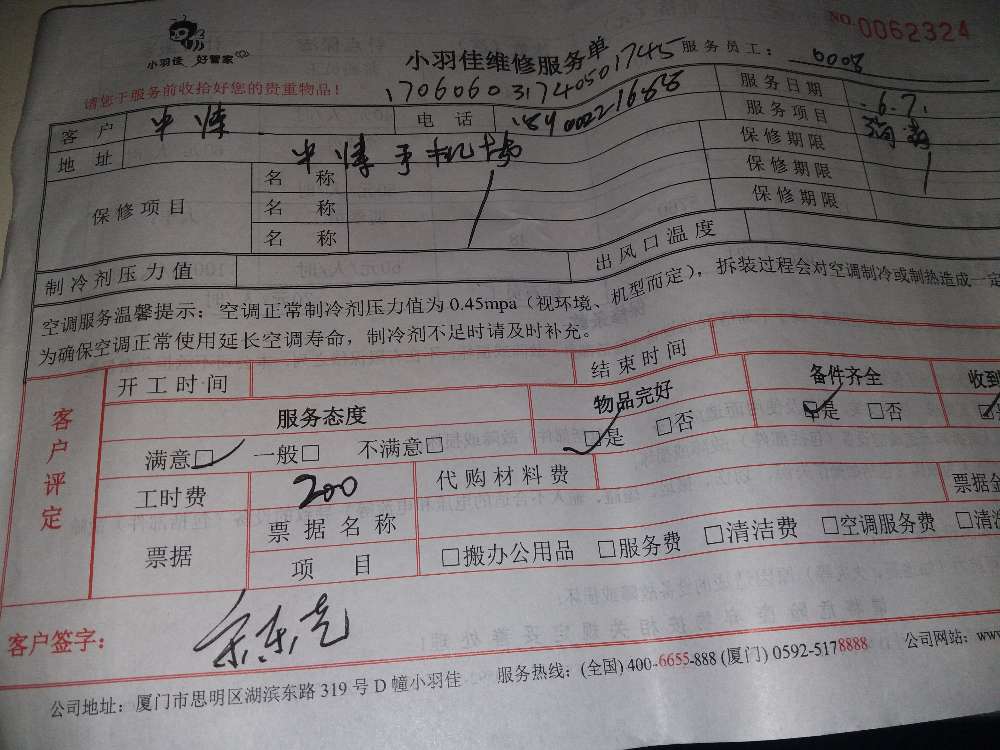 小羽佳 好管家
NO.0062324
小羽佳维修服务单
服务员工: 0008
请您于服务前收拾好您的贵重物品!
17060603174050 1745
服务日期 6.7.
客户 电话 服务项目
地址 手机 保修期限
保修项目 名称 保修期限
名称 保修期限
名称
制冷剂压力值 出风口温度
空调服务温馨提示:空调正常制冷剂压力值为0.45mpa(视环境、机型而定),拆装过程会对空调制冷或制热造成一定
为确保空调正常使用延长空调寿命,制冷剂不足时请及时补充。
客户评定
开工时间 结束时间
服务态度 物品完好 备件齐全 收到
满意□ 一般□ 不满意□ □是 □否 □是 □否
工时费 200 代购材料费
票据 票据名称 票据金
项目 □搬办公用品 □服务费 □清洁费 □空调服务费 □清洁
客户签字:
公司地址:厦门市思明区湖滨东路319号D幢小羽佳 服务热线:(全国)400-6655-888 (厦门) 0592-5178888 公司网站:www